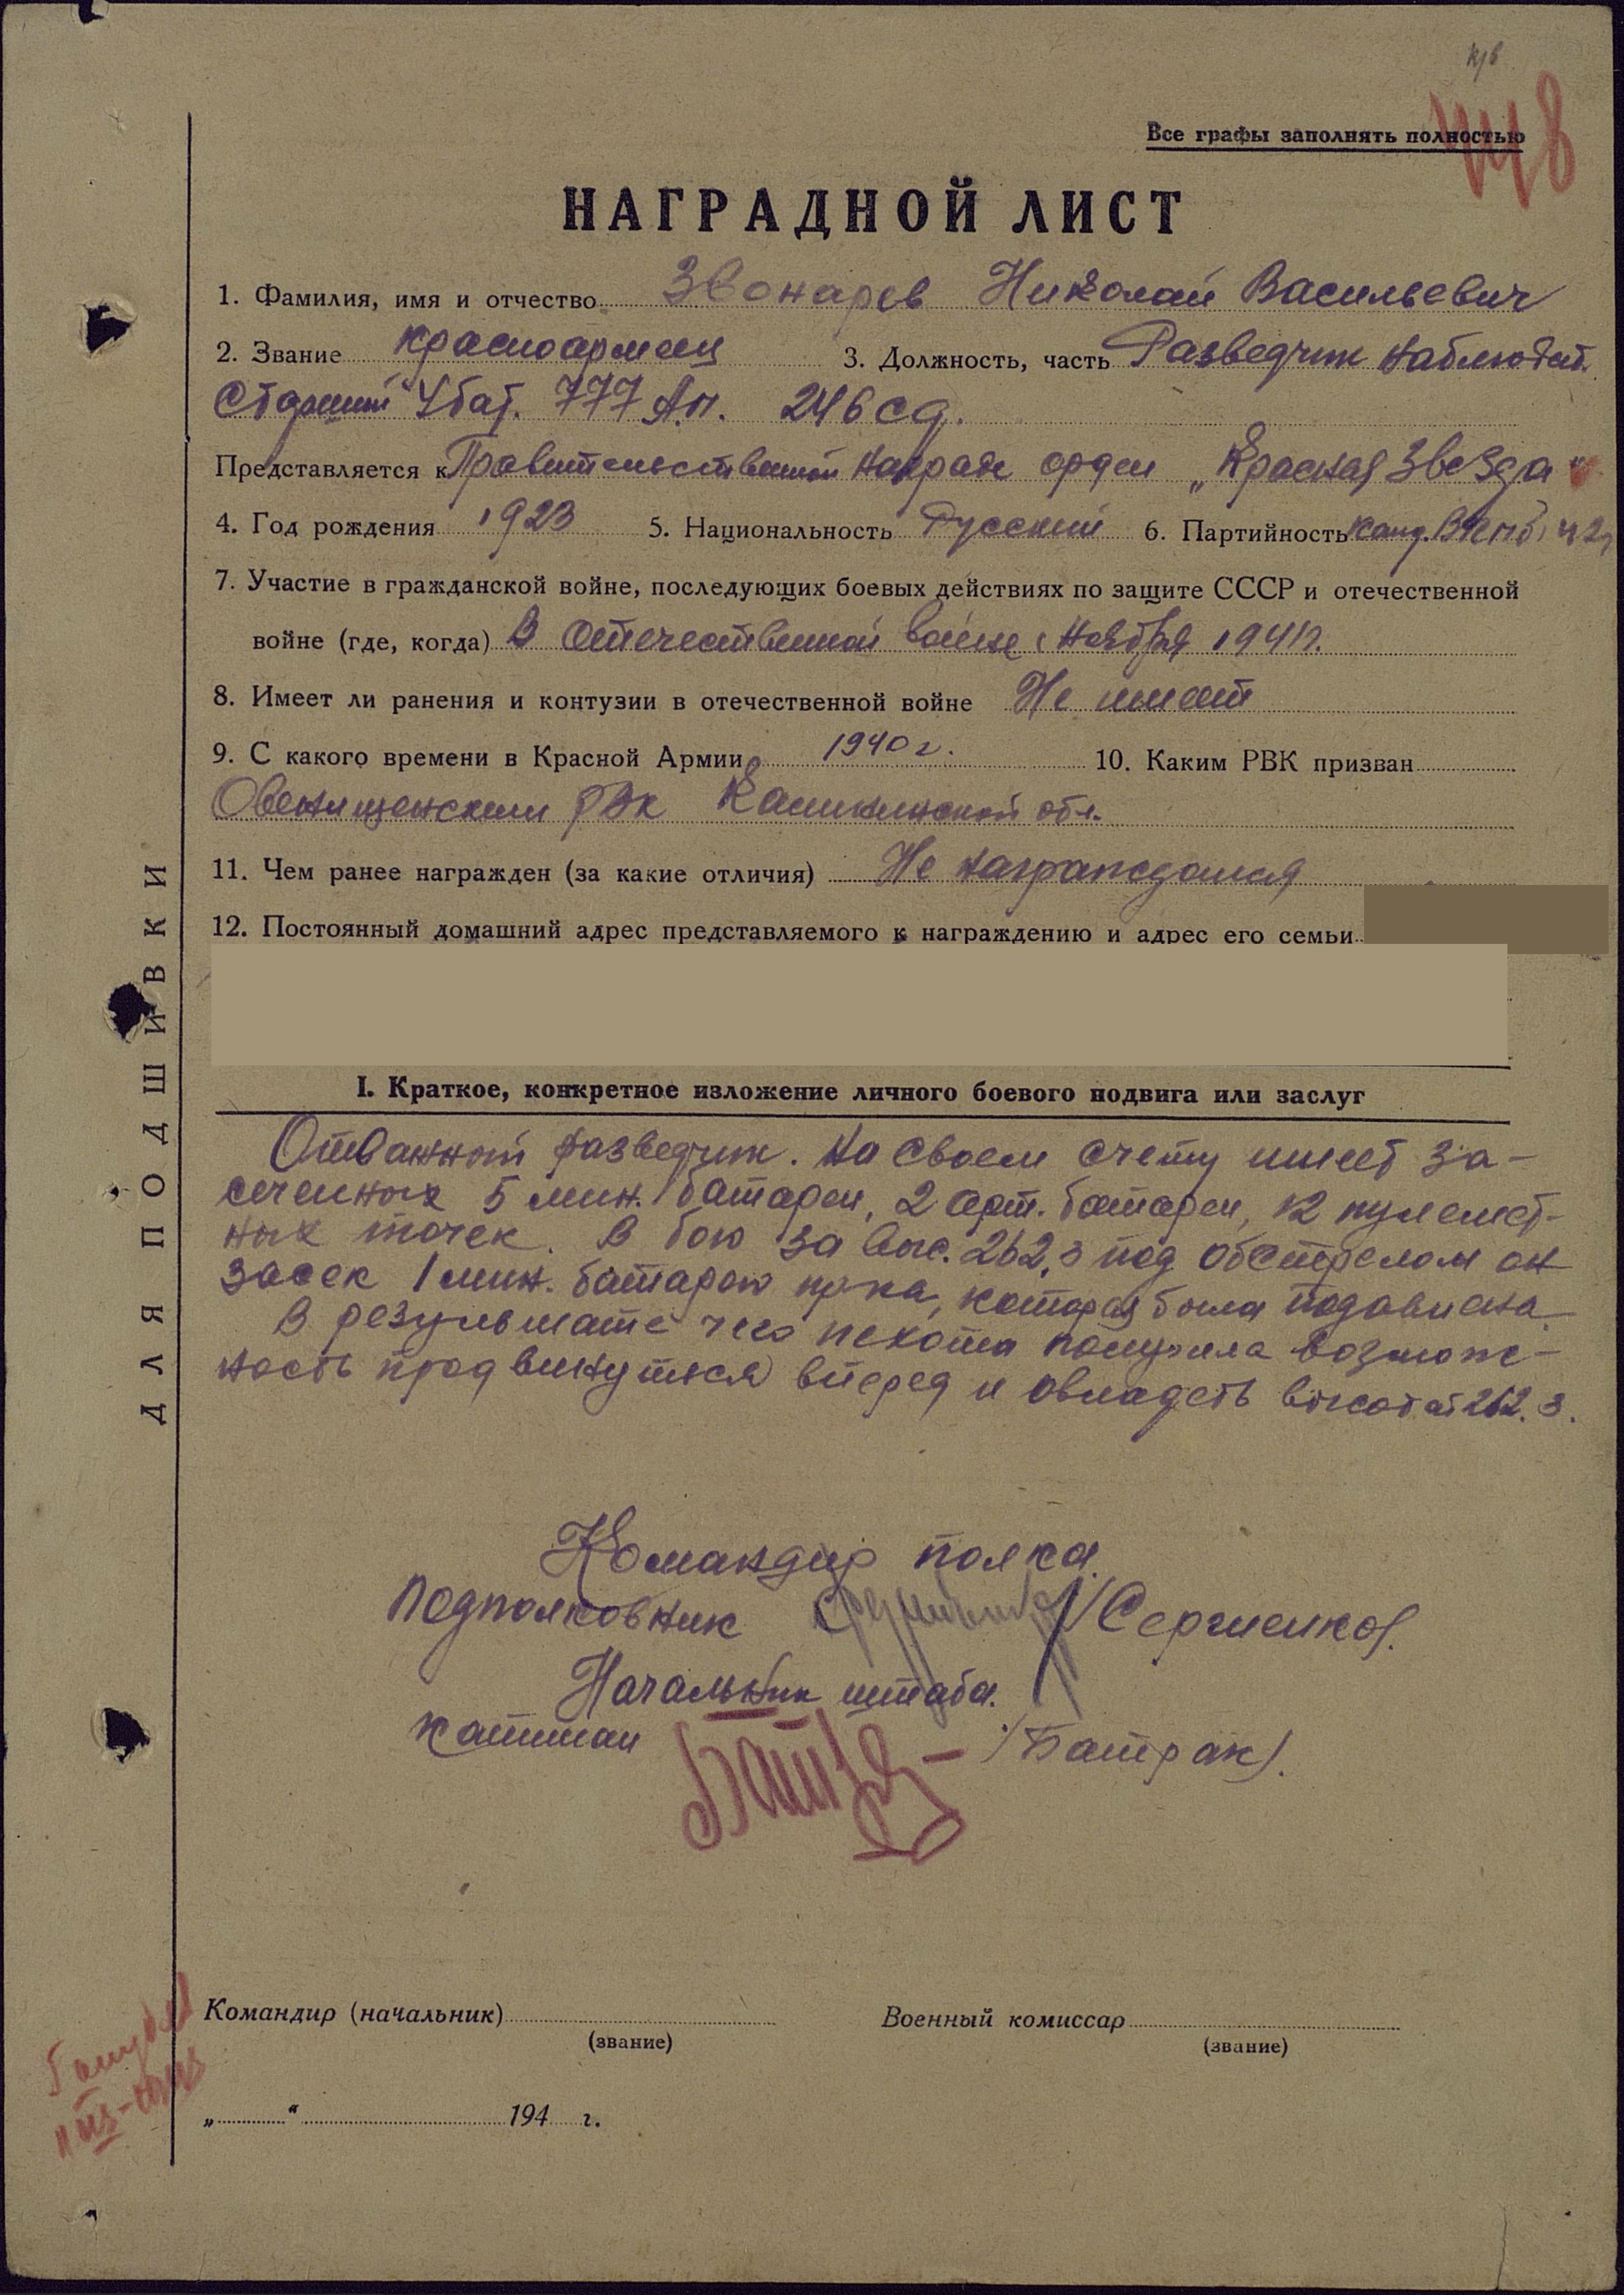 Все графы заполнять полностью
НАГРАДНОЙ ЛИСТ
1. Фамилия, имя и отчество Звонарев Николай Васильевич
2. Звание красноармеец 3. Должность, часть Разведчик наблюдат.
старший 4 бат. 777 Ап. 246 сд.
Представляется к Правительственной награде орден „Красная Звезда"
4. Год рождения 1923 5. Национальность Русский 6. Партийность канд. ВКПб
7. Участие в гражданской войне, последующих боевых действиях по защите СССР и отечественной
войне (где, когда) В Отечественной войне с ноября 1941 г.
8. Имеет ли ранения и контузии в отечественной войне Не имеет
9. С какого времени в Красной Армии 1940 г. 10. Каким РВК призван
Овенищенским РВК Калининской обл.
11. Чем ранее награжден (за какие отличия) Не награждался
12. Постоянный домашний адрес представляемого к награждению и адрес его семьи
I. Краткое, конкретное изложение личного боевого подвига или заслуг
Отважный разведчик. На своем счету имеет за-
сеченных 5 мин. батареи, 2 арт. батареи, 12 пулемет-
ных точек. В бою за выс. 262,3 под обстрелом он
засек 1 мин. батарею пр-ка, которая была подавлена.
В результате чего пехота получила возмож-
ность продвинуться вперед и овладеть высотой 262.3.
Командир полка.
Подполковник /Сергиенко/.
Начальник штаба.
капитан Батрак /Батрак/.
Командир (начальник)
(звание)
Военный комиссар
(звание)
„ “ 194 г.
ДЛЯ ПОДШИВКИ